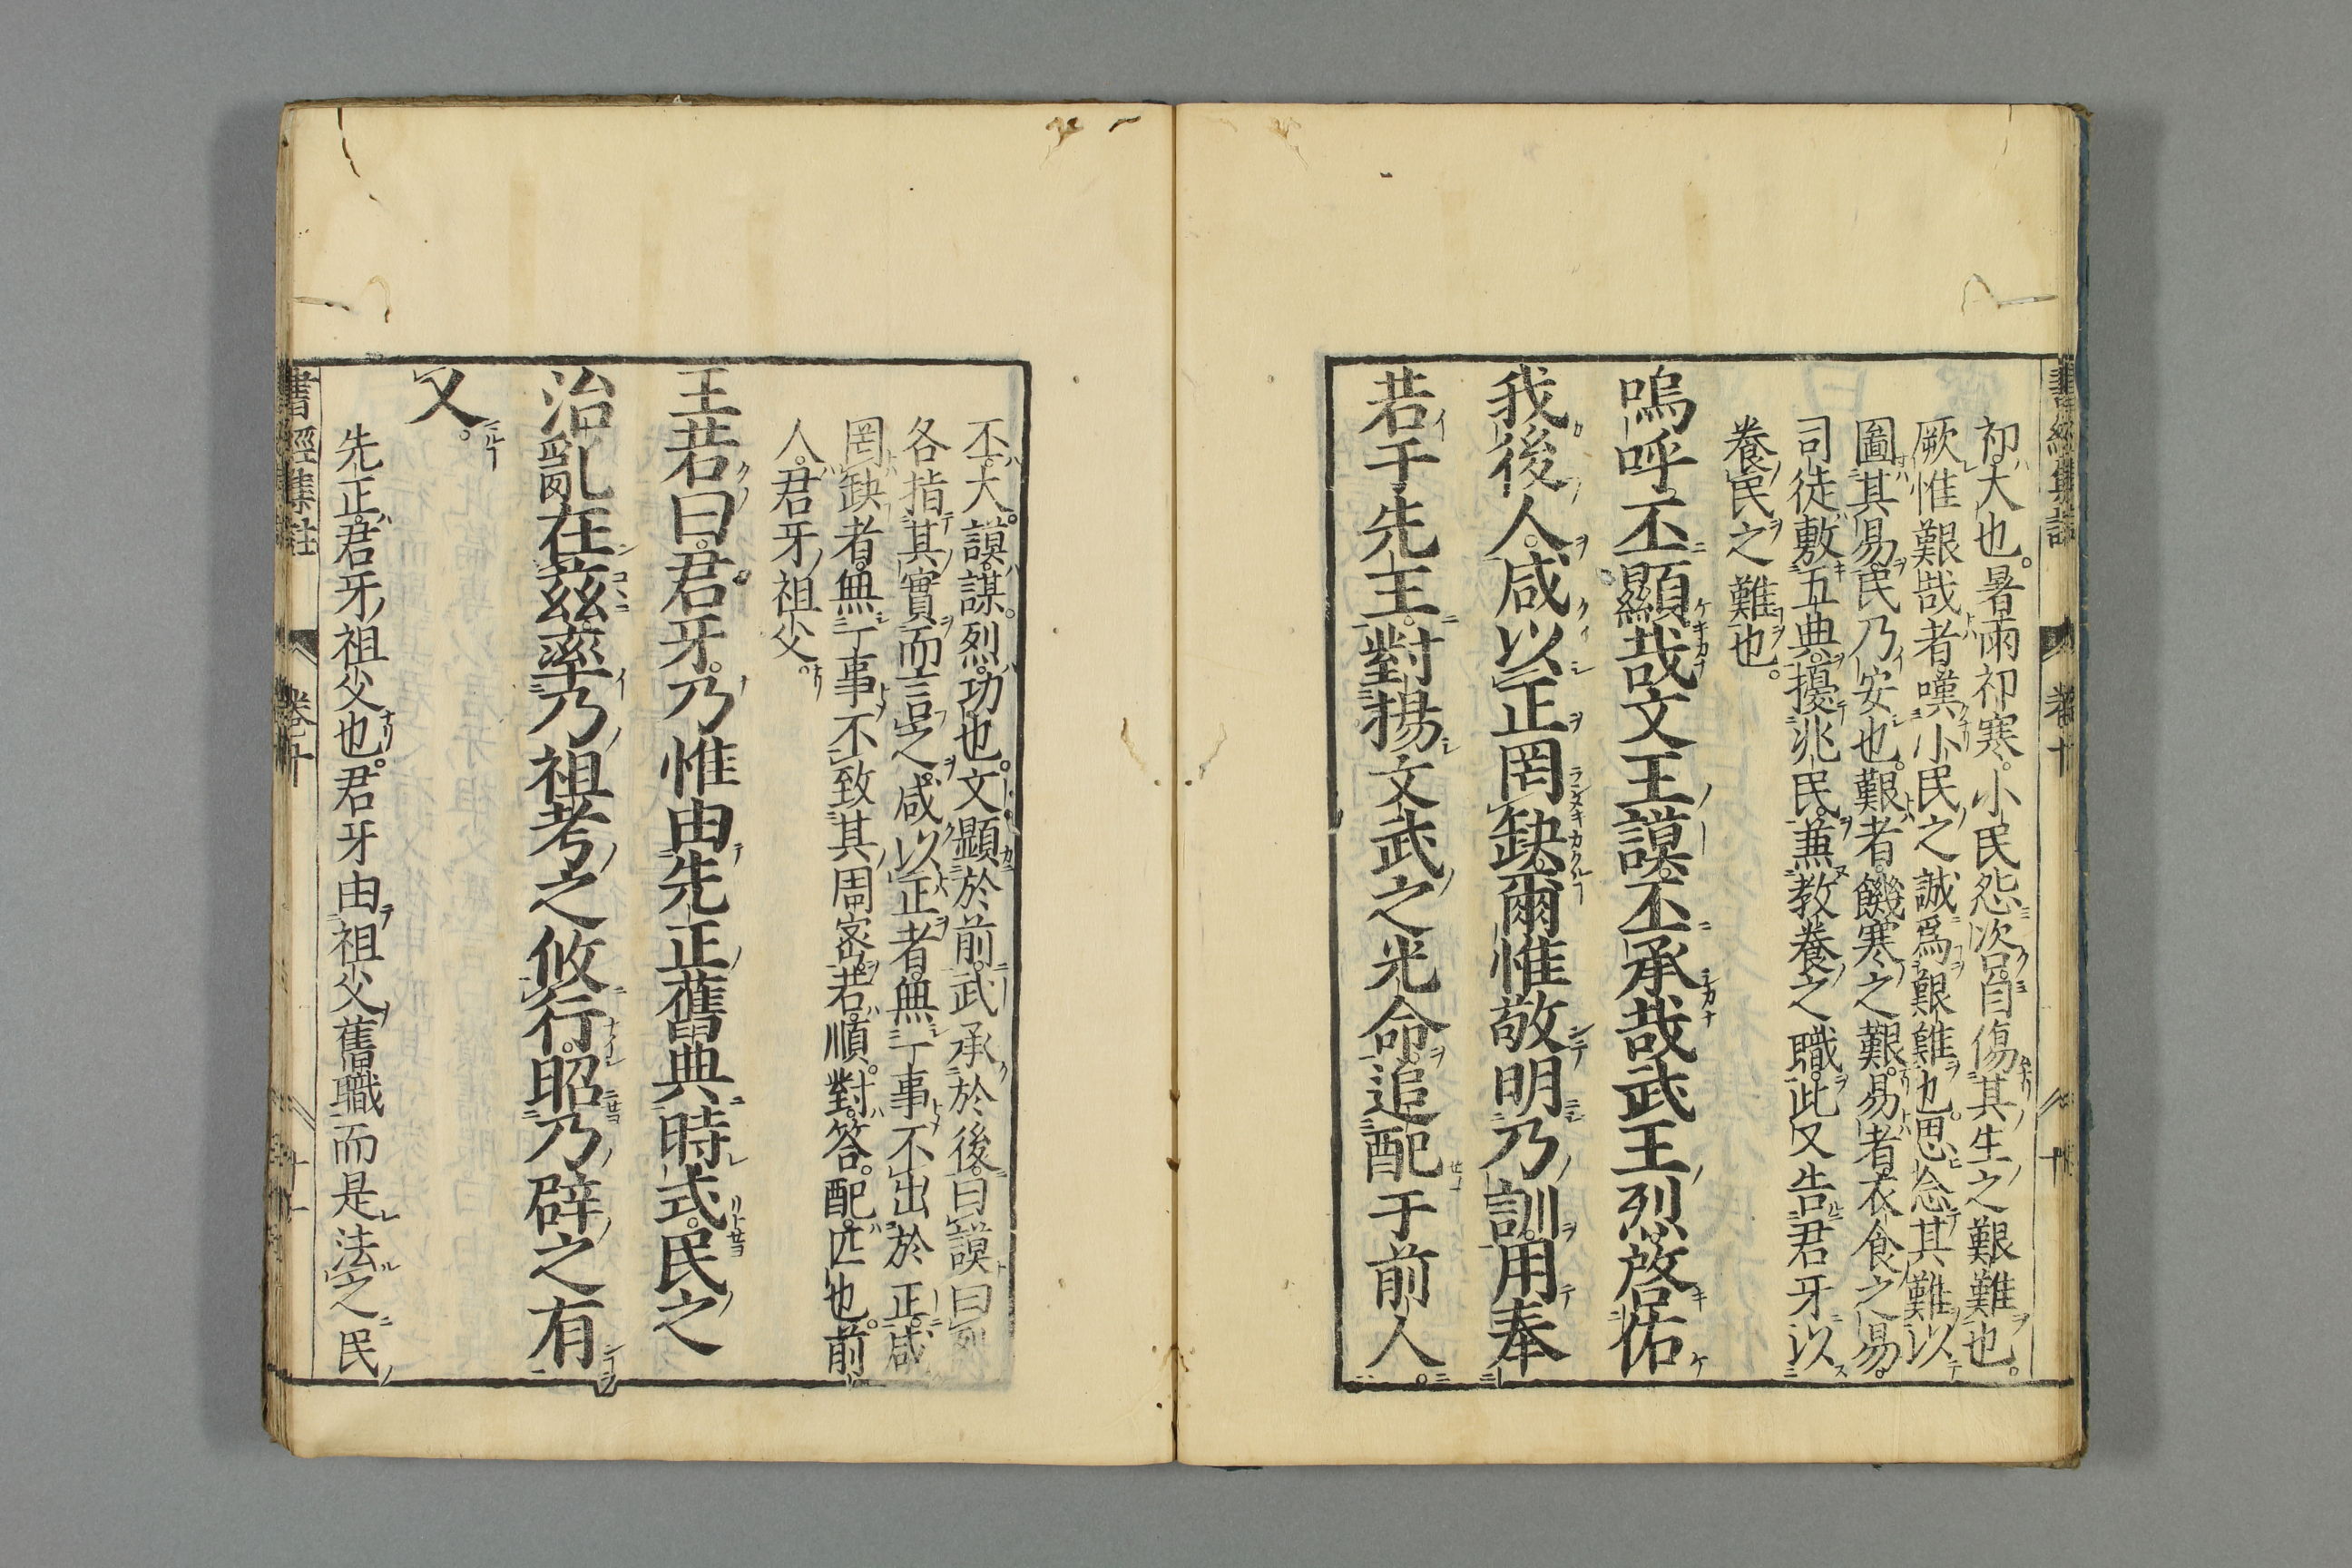 初大也。暑雨初寒。小民怨咨自傷其生之艱難也。
厥惟艱哉者嘆小民之誠爲艱難也。思念其難以
圖其易民乃安也。艱者饑寒之艱。易者衣食之易。
司徒敷五典擾兆民兼教養之職此又告君牙以
養民之難也。
嗚呼丕顯哉文王謨丕承哉武王烈啓佑
我後人咸以正罔缺爾惟敬明乃訓用奉
若于先王對揚文武之光命追配于前人。
丕大。謨謀。烈功也。文顯於前武承於後曰謨曰烈
各指其實而言之咸以正者無一事不出於正咸
罔缺者無一事不致其周密若順。對答。配匹也。前
人君牙祖父。
王若曰。君牙。乃惟由先正舊典時式民之
治亂在茲率乃祖考之攸行。昭乃辟之有
乂。
先正君牙祖父也。君牙由祖父舊職而是法之民
書經集註 卷十 十一